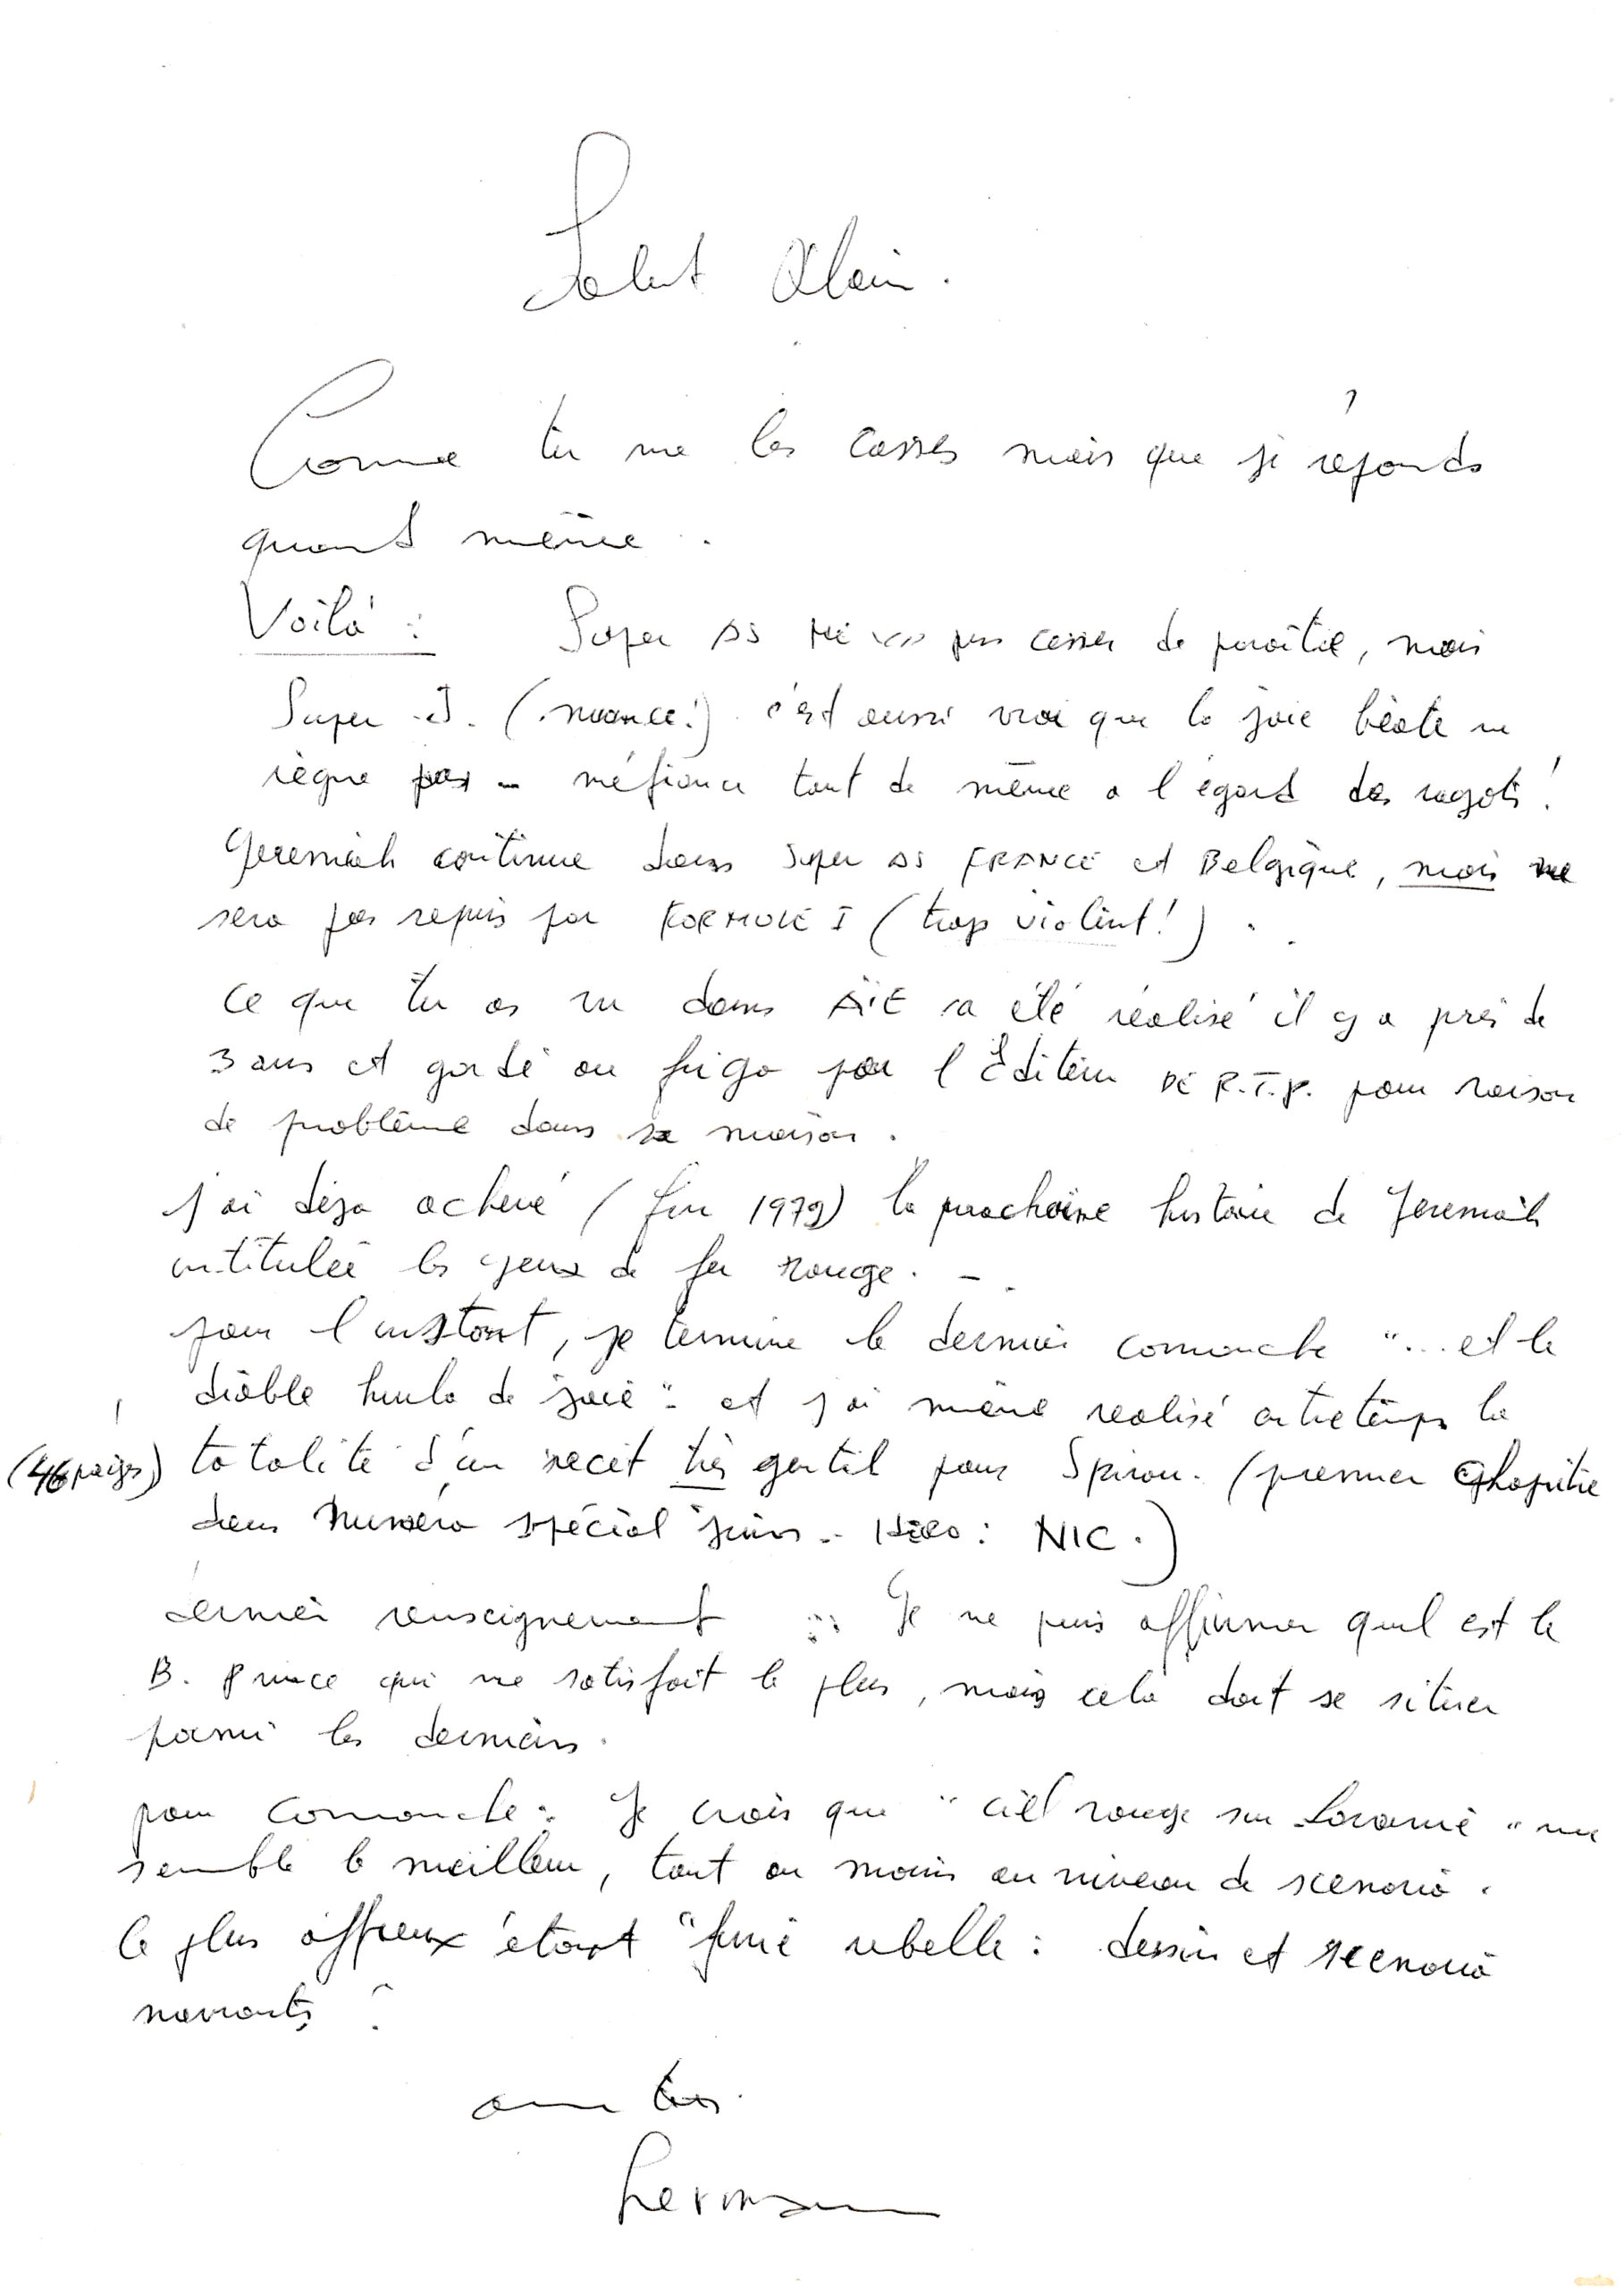 Salut Alain.
Comme tu me les casses mais que je réponds
quand même.
Voilà : Super AS ne va pas cesser de paraître, mais
Super J. (nuance!) c'est aussi vrai que la joie béate ne
règne pas - méfiance tout de même a l'égard des ragots!
Jeremiah continue dans Super AS FRANCE et Belgique, mais ne
sera pas repris par FORMULE I (trop violent!).
Ce que tu as vu dans AÏE a été réalisé il y a près de
3 ans et gardé au frigo par l'Editeur DE R.T.P. pour raison
de problème dans sa maison.
j'ai déja achevé (fin 1979) la prochaine histoire de Jeremiah
intitulée les yeux de fer rouge. -
pour l'instant, je termine le dernier comanche "... et le
diable hurla de joie" et j'ai même réalisé entretemps la
(46 pages) totalité d'un récit très gentil pour Spirou. (premier chapitre
dans Numéro spécial juin - Héro : NIC.)
dernier renseignement : Je ne puis affirmer quel est le
B. Prince qui me satisfait le plus, mais cela doit se situer
parmi les derniers.
pour comanche : Je crois que "ciel rouge sur Laramie" me
semble le meilleur, tout au moins au niveau de scénario.
Le plus affreux étant "furie rebelle : dessin et scénario
navrants!
Hermann